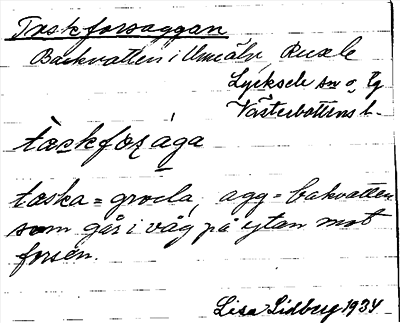 Toskforsaggan
Backvatten i Umeälv, Rusele
Lycksele sn o. tg
Västerbottens l.
tàskfoṣága
toska = groda, agg = bakvatten
som går i våg på ytan mot
forsen.
Lisa Lidberg 1934